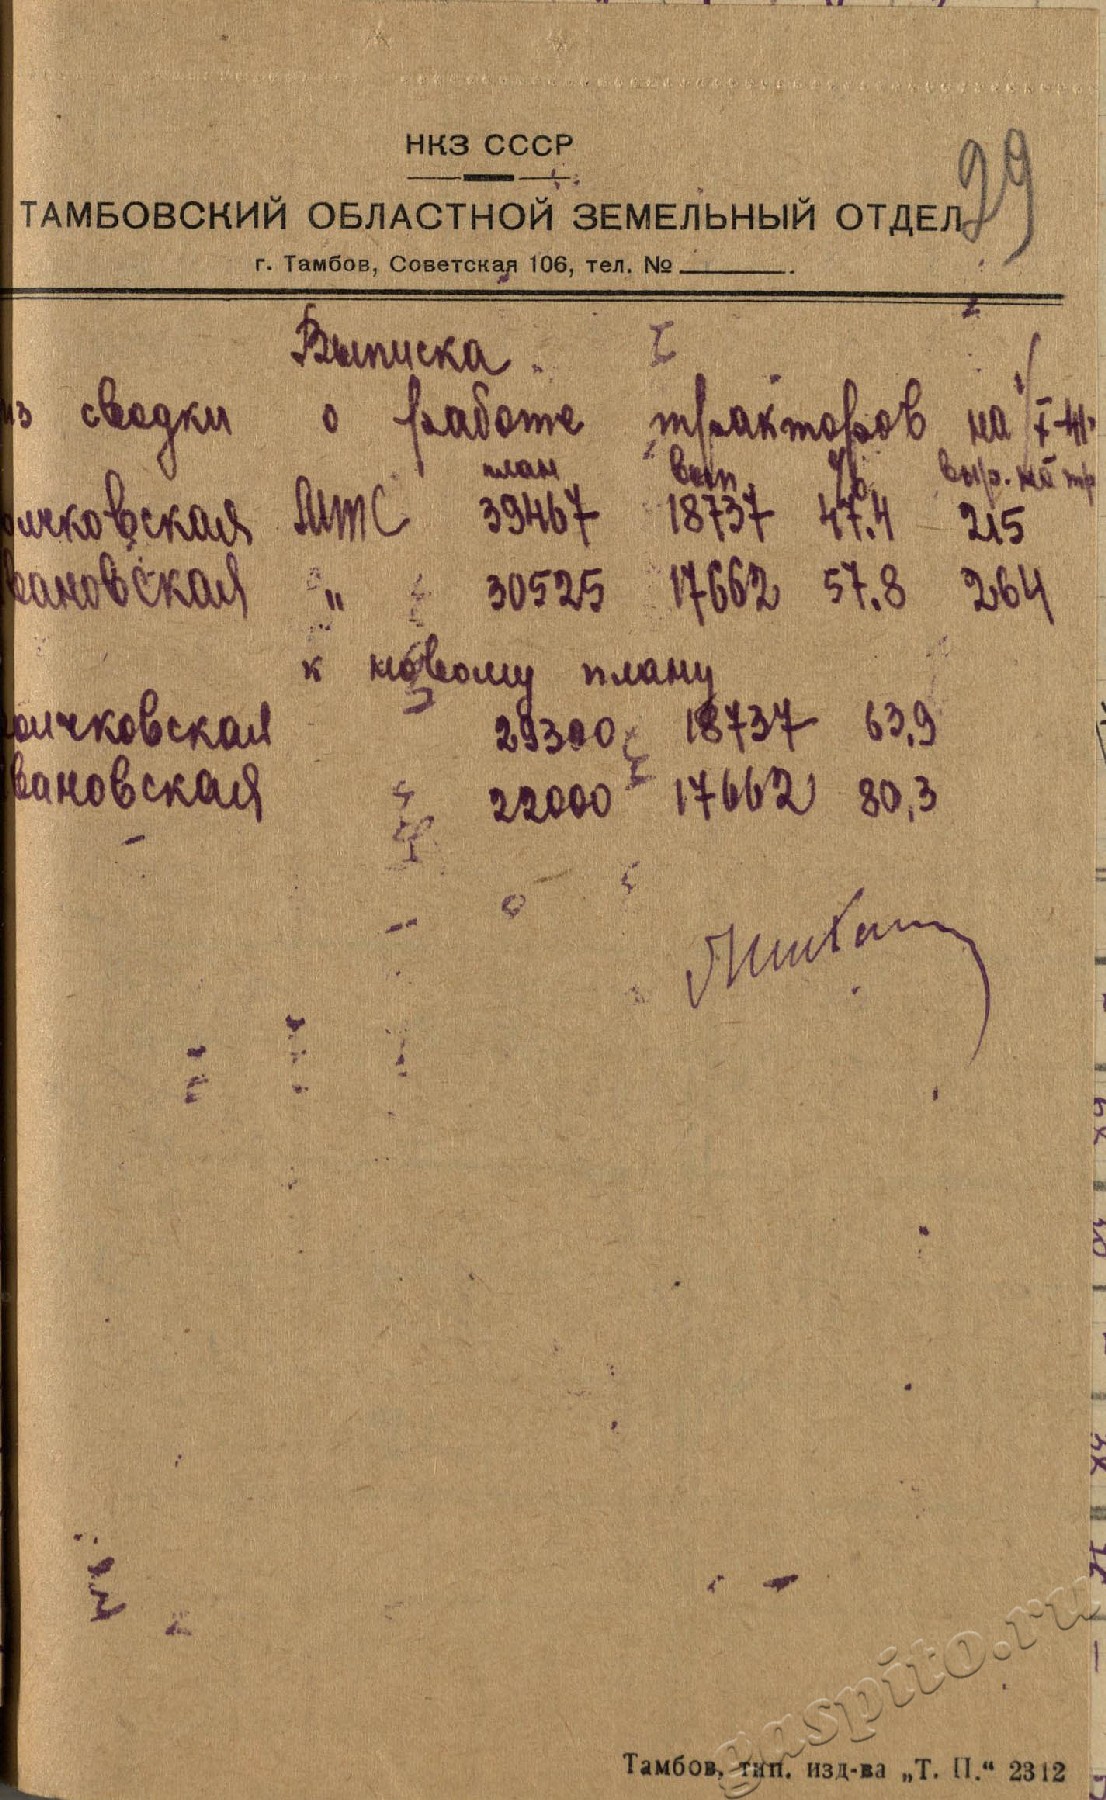 29
НКЗ СССР
ТАМБОВСКИЙ ОБЛАСТНОЙ ЗЕМЕЛЬНЫЙ ОТДЕЛ
г. Тамбов, Советская 106, тел. № ______.
Выписка
из сводки о работе тракторов на
план вып. % выр. на тр
оичковская МТС 39467 18737 47.4 215
вановская " 30525 17662 57.8 264
к новому плану
оичковская 29300 18737 63,9
вановская 22000 17662 80,3
gaspito.ru
Тамбов, тип. изд-ва „Т. П.“ 2312